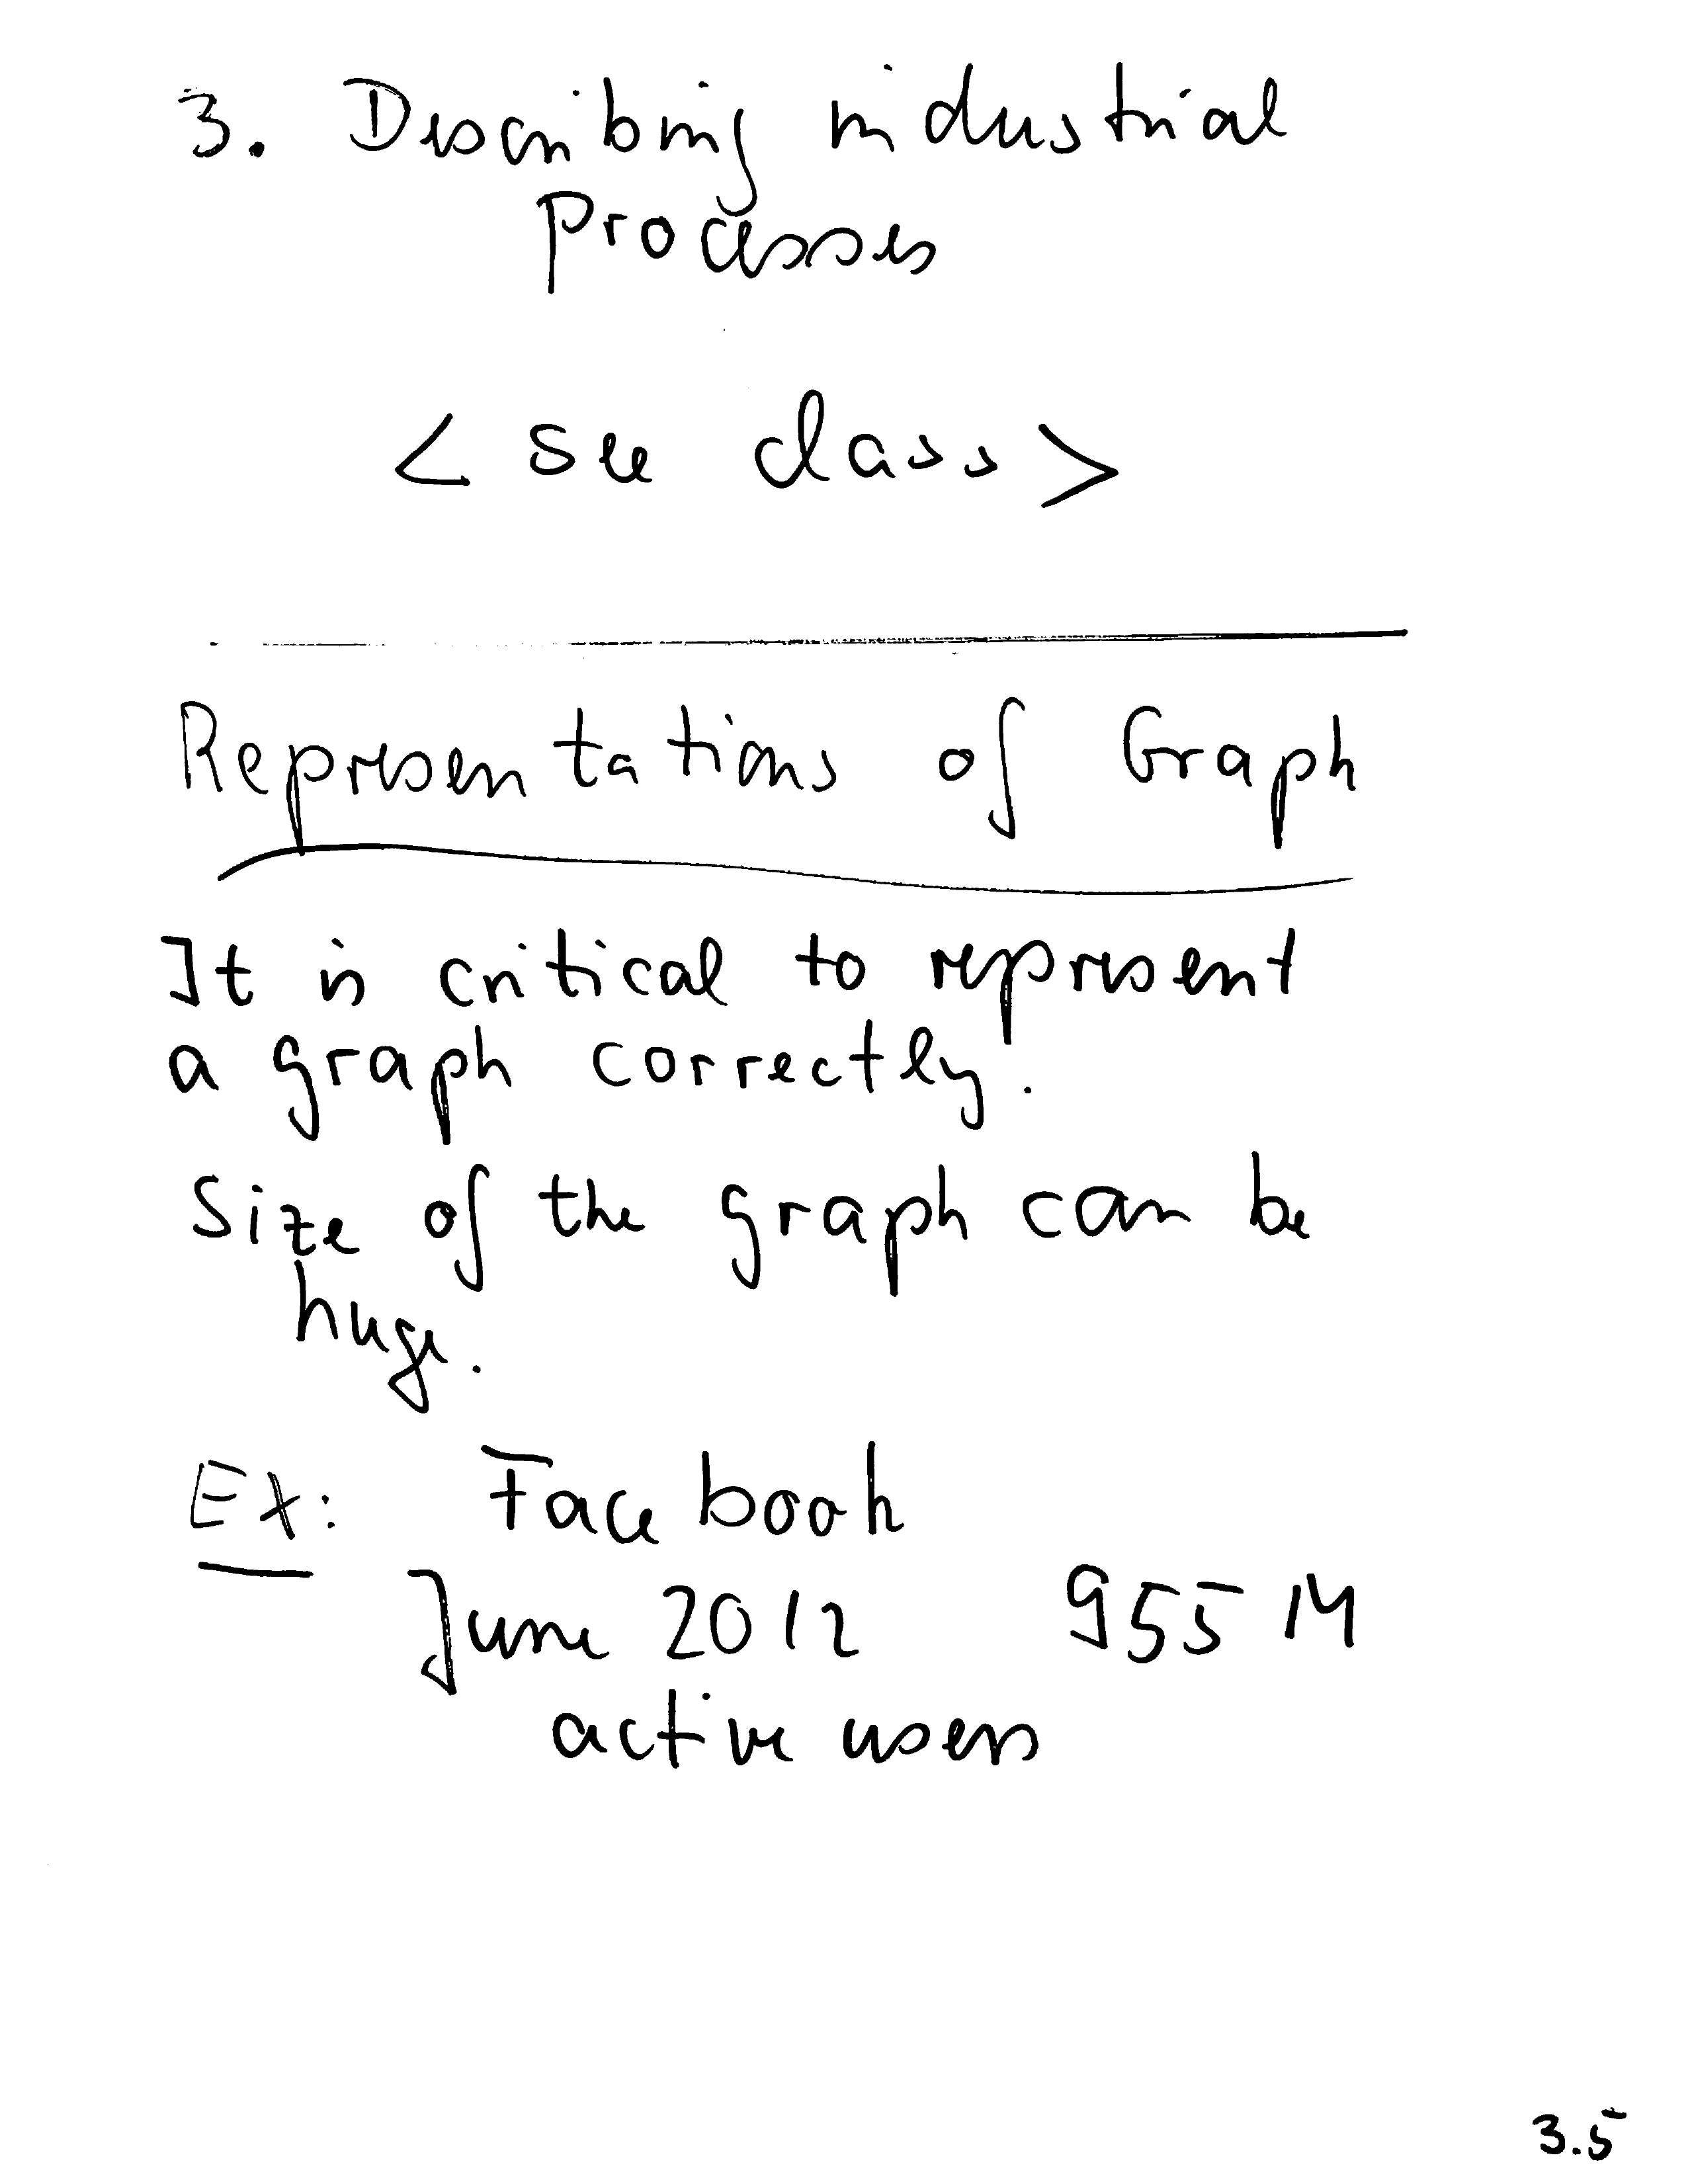 3. Describing industrial
processes
< see class >
Representations of Graph
It is critical to represent
a graph correctly.
Size of the graph can be
huge.
Ex: Facebook
June 2012 955 M
active users
3.5